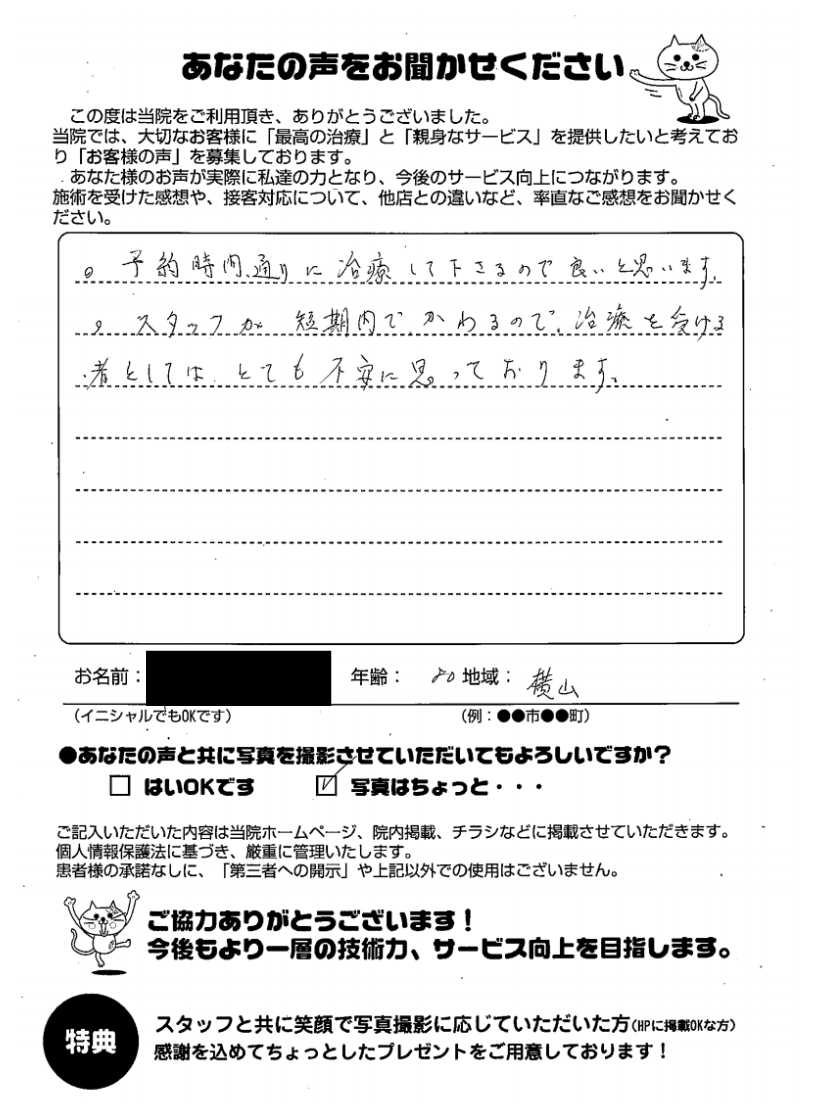 あなたの声をお聞かせください
この度は当院をご利用頂き、ありがとうございました。
当院では、大切なお客様に「最高の治療」と「親身なサービス」を提供したいと考えてお
り「お客様の声」を募集しております。
あなた様のお声が実際に私達の力となり、今後のサービス向上につながります。
施術を受けた感想や、接客対応について、他店との違いなど、率直なご感想をお聞かせく
ださい。
。予約時間通りに治療して下さるので良いと思います。
。スタッフが短期内でかわるので、治療を受ける
者としては、とても不安に思っております。
お名前: 年齢: 80 地域: 横山
(イニシャルでもOKです) (例:●●市●●町)
●あなたの声と共に写真を撮影させていただいてもよろしいですか?
□ はいOKです ☑ 写真はちょっと・・・
ご記入いただいた内容は当院ホームページ、院内掲載、チラシなどに掲載させていただきます。
個人情報保護法に基づき、厳重に管理いたします。
患者様の承諾なしに、「第三者への開示」や上記以外での使用はございません。
ご協力ありがとうございます!
今後もより一層の技術力、サービス向上を目指します。
特典
スタッフと共に笑顔で写真撮影に応じていただいた方(HPに掲載OKな方)
感謝を込めてちょっとしたプレゼントをご用意しております!